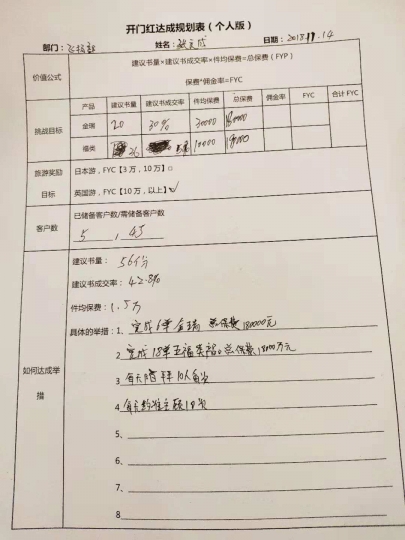 开门红达成规划表（个人版）
部门： 姓名： 日期：2018.11.14
价值公式
建议书量×建议书成交率×件均保费=总保费（FYP）
保费*佣金率=FYC
挑战目标
产品 建议书量 成交率 件均保费 总保费 佣金率 FYC 合计 FYC
金瑞 20 30% 30000 180000
福类 36 10000 18000
旅游奖励
目标
日本游，FYC【3万，10万】□
英国游，FYC【10万，以上】✓
客户数
已储备客户数/需储备客户数
5 , 45
如何达成举措
建议书量： 56份
建议书成交率： 42.8%
件均保费： 1.5万
具体的举措：1、完成6单金瑞 总保费180000元
2 完成18单五福 总保费18000万元
3 每天陪拜10人
4 每天约准主顾18
5、
6、
7、
8